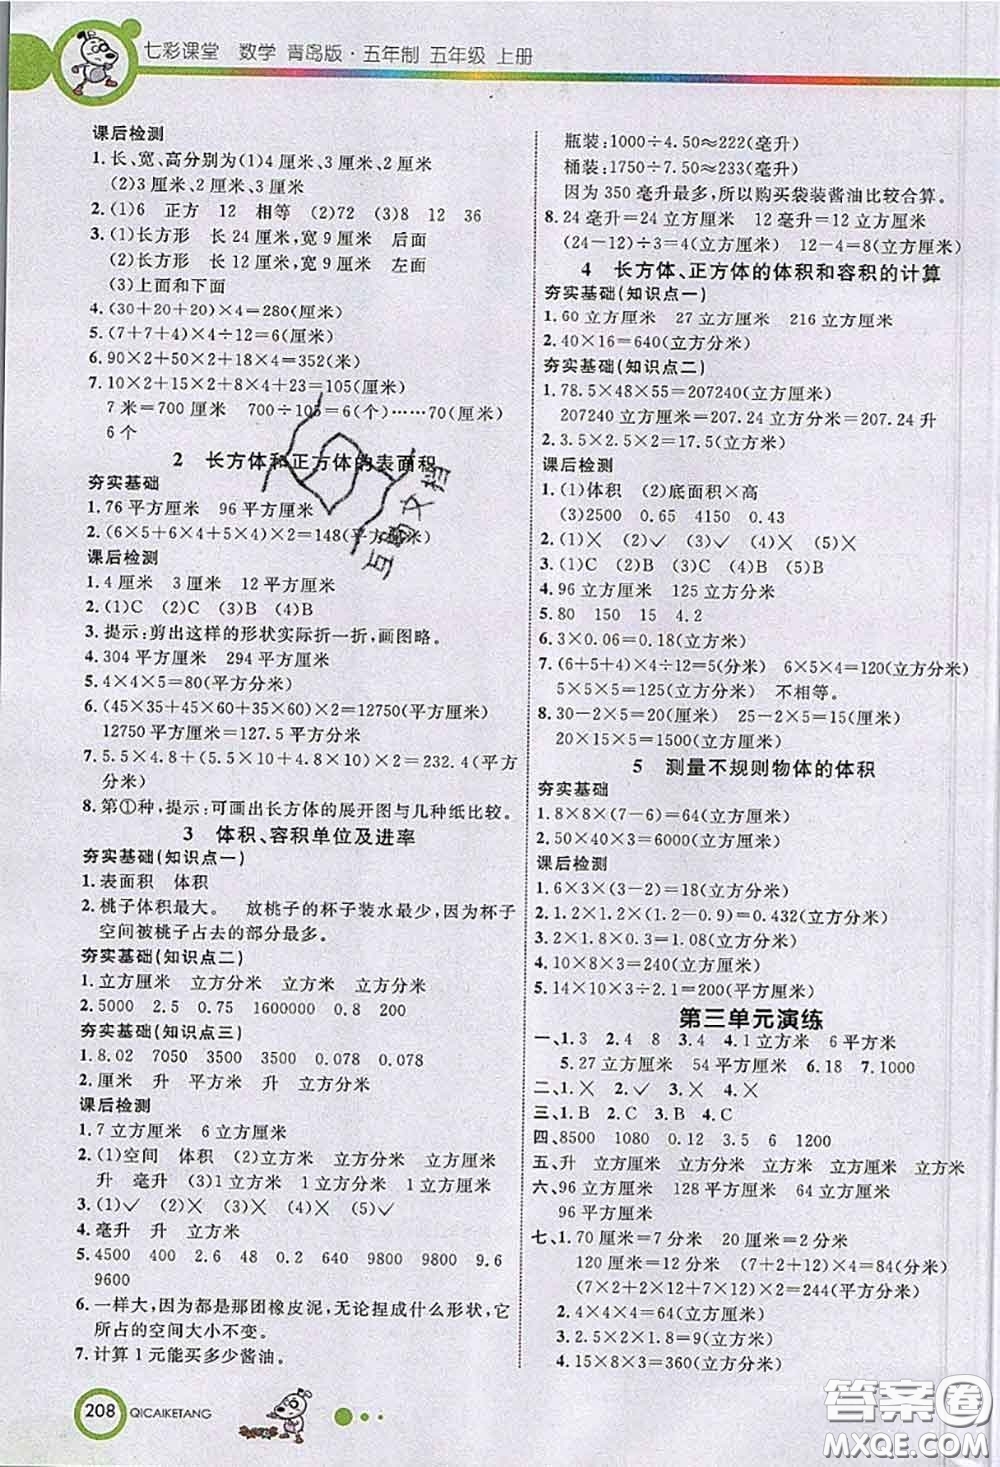 七彩课堂 数学 青岛版·五年制 五年级 上册
课后检测
1.长、宽、高分别为(1)4厘米、3厘米、2厘米
(2)3厘米、2厘米、3厘米
2.(1)6 正方 12 相等 (2)72 (3)8 12 36
3.(1)长方形 长24厘米,宽9厘米 后面
(2)长方形 长9厘米,宽9厘米 左面
(3)上面和下面
4.(30+20+20)×4=280(厘米)
5.(7+7+4)×4÷12=6(厘米)
6.90×2+50×2+18×4=352(米)
7.10×2+15×2+8×4+23=105(厘米)
7米=700厘米 700÷105=6(个)……70(厘米)
6个
2 长方体和正方体的表面积
夯实基础
1.76平方厘米 96平方厘米
2.(6×5+6×4+5×4)×2=148(平方厘米)
课后检测
1.4厘米 3厘米 12平方厘米
2.(1)C (2)C (3)B (4)B
3.提示:剪出这样的形状实际折一折,画图略。
4.304平方厘米 294平方厘米
5.4×4×5=80(平方分米)
6.(45×35+45×60+35×60)×2=12750(平方厘米)
12750平方厘米=127.5平方分米
7.5.5×4.8+(5.5×10+4.8×10)×2=232.4(平方分米)
8.第①种,提示:可画出长方体的展开图与几种纸比较。
3 体积、容积单位及进率
夯实基础(知识点一)
1.表面积 体积
2.桃子体积最大。 放桃子的杯子装水最少,因为杯子
空间被桃子占去的部分最多。
夯实基础(知识点二)
1.立方厘米 立方分米 立方分米 立方米
2.5000 2.5 0.75 1600000 0.8
夯实基础(知识点三)
1.8.02 7050 3500 3500 0.078 0.078
2.厘米 升 平方米 升 立方分米
课后检测
1.7立方厘米 6立方厘米
2.(1)空间 体积 (2)立方米 立方分米 立方厘米
升 毫升 (3)1立方米 1立方分米 1立方厘米
3.(1)✓ (2)╳ (3)╳ (4)✓ (5)╳
4.毫升 升 立方米
5.4500 400 2.6 48 0.2 640 9800 9800 9.6
9600
6.一样大,因为都是那团橡皮泥,无论捏成什么形状,它
所占的空间大小不变。
7.计算1元能买多少酱油。
208 QICAIKETANG
瓶装:1000÷4.50≈222(毫升)
桶装:1750÷7.50≈233(毫升)
因为350毫升最多,所以购买袋装酱油比较合算。
8.24毫升=24立方厘米 12毫升=12立方厘米
(24-12)÷3=4(立方厘米) 12-4=8(立方厘米)
4 长方体、正方体的体积和容积的计算
夯实基础(知识点一)
1.60立方厘米 27立方厘米 216立方厘米
2.40×16=640(立方分米)
夯实基础(知识点二)
1.78.5×48×55=207240(立方厘米)
207240立方厘米=207.24立方分米=207.24升
2.3.5×2.5×2=17.5(立方米)
课后检测
1.(1)体积 (2)底面积×高
(3)2500 0.65 4150 0.43
2.(1)╳ (2)✓ (3)╳ (4)✓ (5)╳
3.(1)C (2)C (3)A (4)B (5)B
4.96立方分米 125立方厘米
5.80 150 15 4.2
6.3×0.06=0.18(立方米)
7.(6+5+4)×4÷12=5(分米) 6×5×4=120(立方分米)
5×5×5=125(立方分米) 不相等。
8.30-2×5=20(厘米) 25-2×5=15(厘米)
20×15×5=1500(立方厘米)
5 测量不规则物体的体积
夯实基础
1.8×8×(7-6)=64(立方厘米)
2.50×40×3=6000(立方厘米)
课后检测
1.6×3×(3-2)=18(立方分米)
2.1.2×1.2×(1.2-0.9)=0.432(立方分米)
3.2×1.8×0.3=1.08(立方分米)
4.10×8×3=240(立方厘米)
5.14×10×3÷2.1=200(平方厘米)
第三单元演练
一、1.3 2.4 8 3.4 4.1立方分米 6平方分米
5.27立方厘米 54平方厘米 6.18 7.1000
二、1.╳ 2.✓ 3.╳ 4.╳ 5.╳
三、1.B 2.C 3.B 4.C
四、8500 1080 0.12 3.5 6 1200
五、升 立方厘米 立方分米 立方米 立方分米 立方米
六、96立方厘米 128平方厘米 64立方厘米
96平方厘米
七、1.70厘米=7分米 20厘米=2分米
120厘米=12分米 (7+2+12)×4=84(分米)
(7×2+2×12+7×12)×2=244(平方分米)
2.4×4×4=64(立方厘米)
3.2.5×2×1.8=9(立方米)
4.15×8×3=360(立方分米)
互动文档
答案圈
MXQE.COM